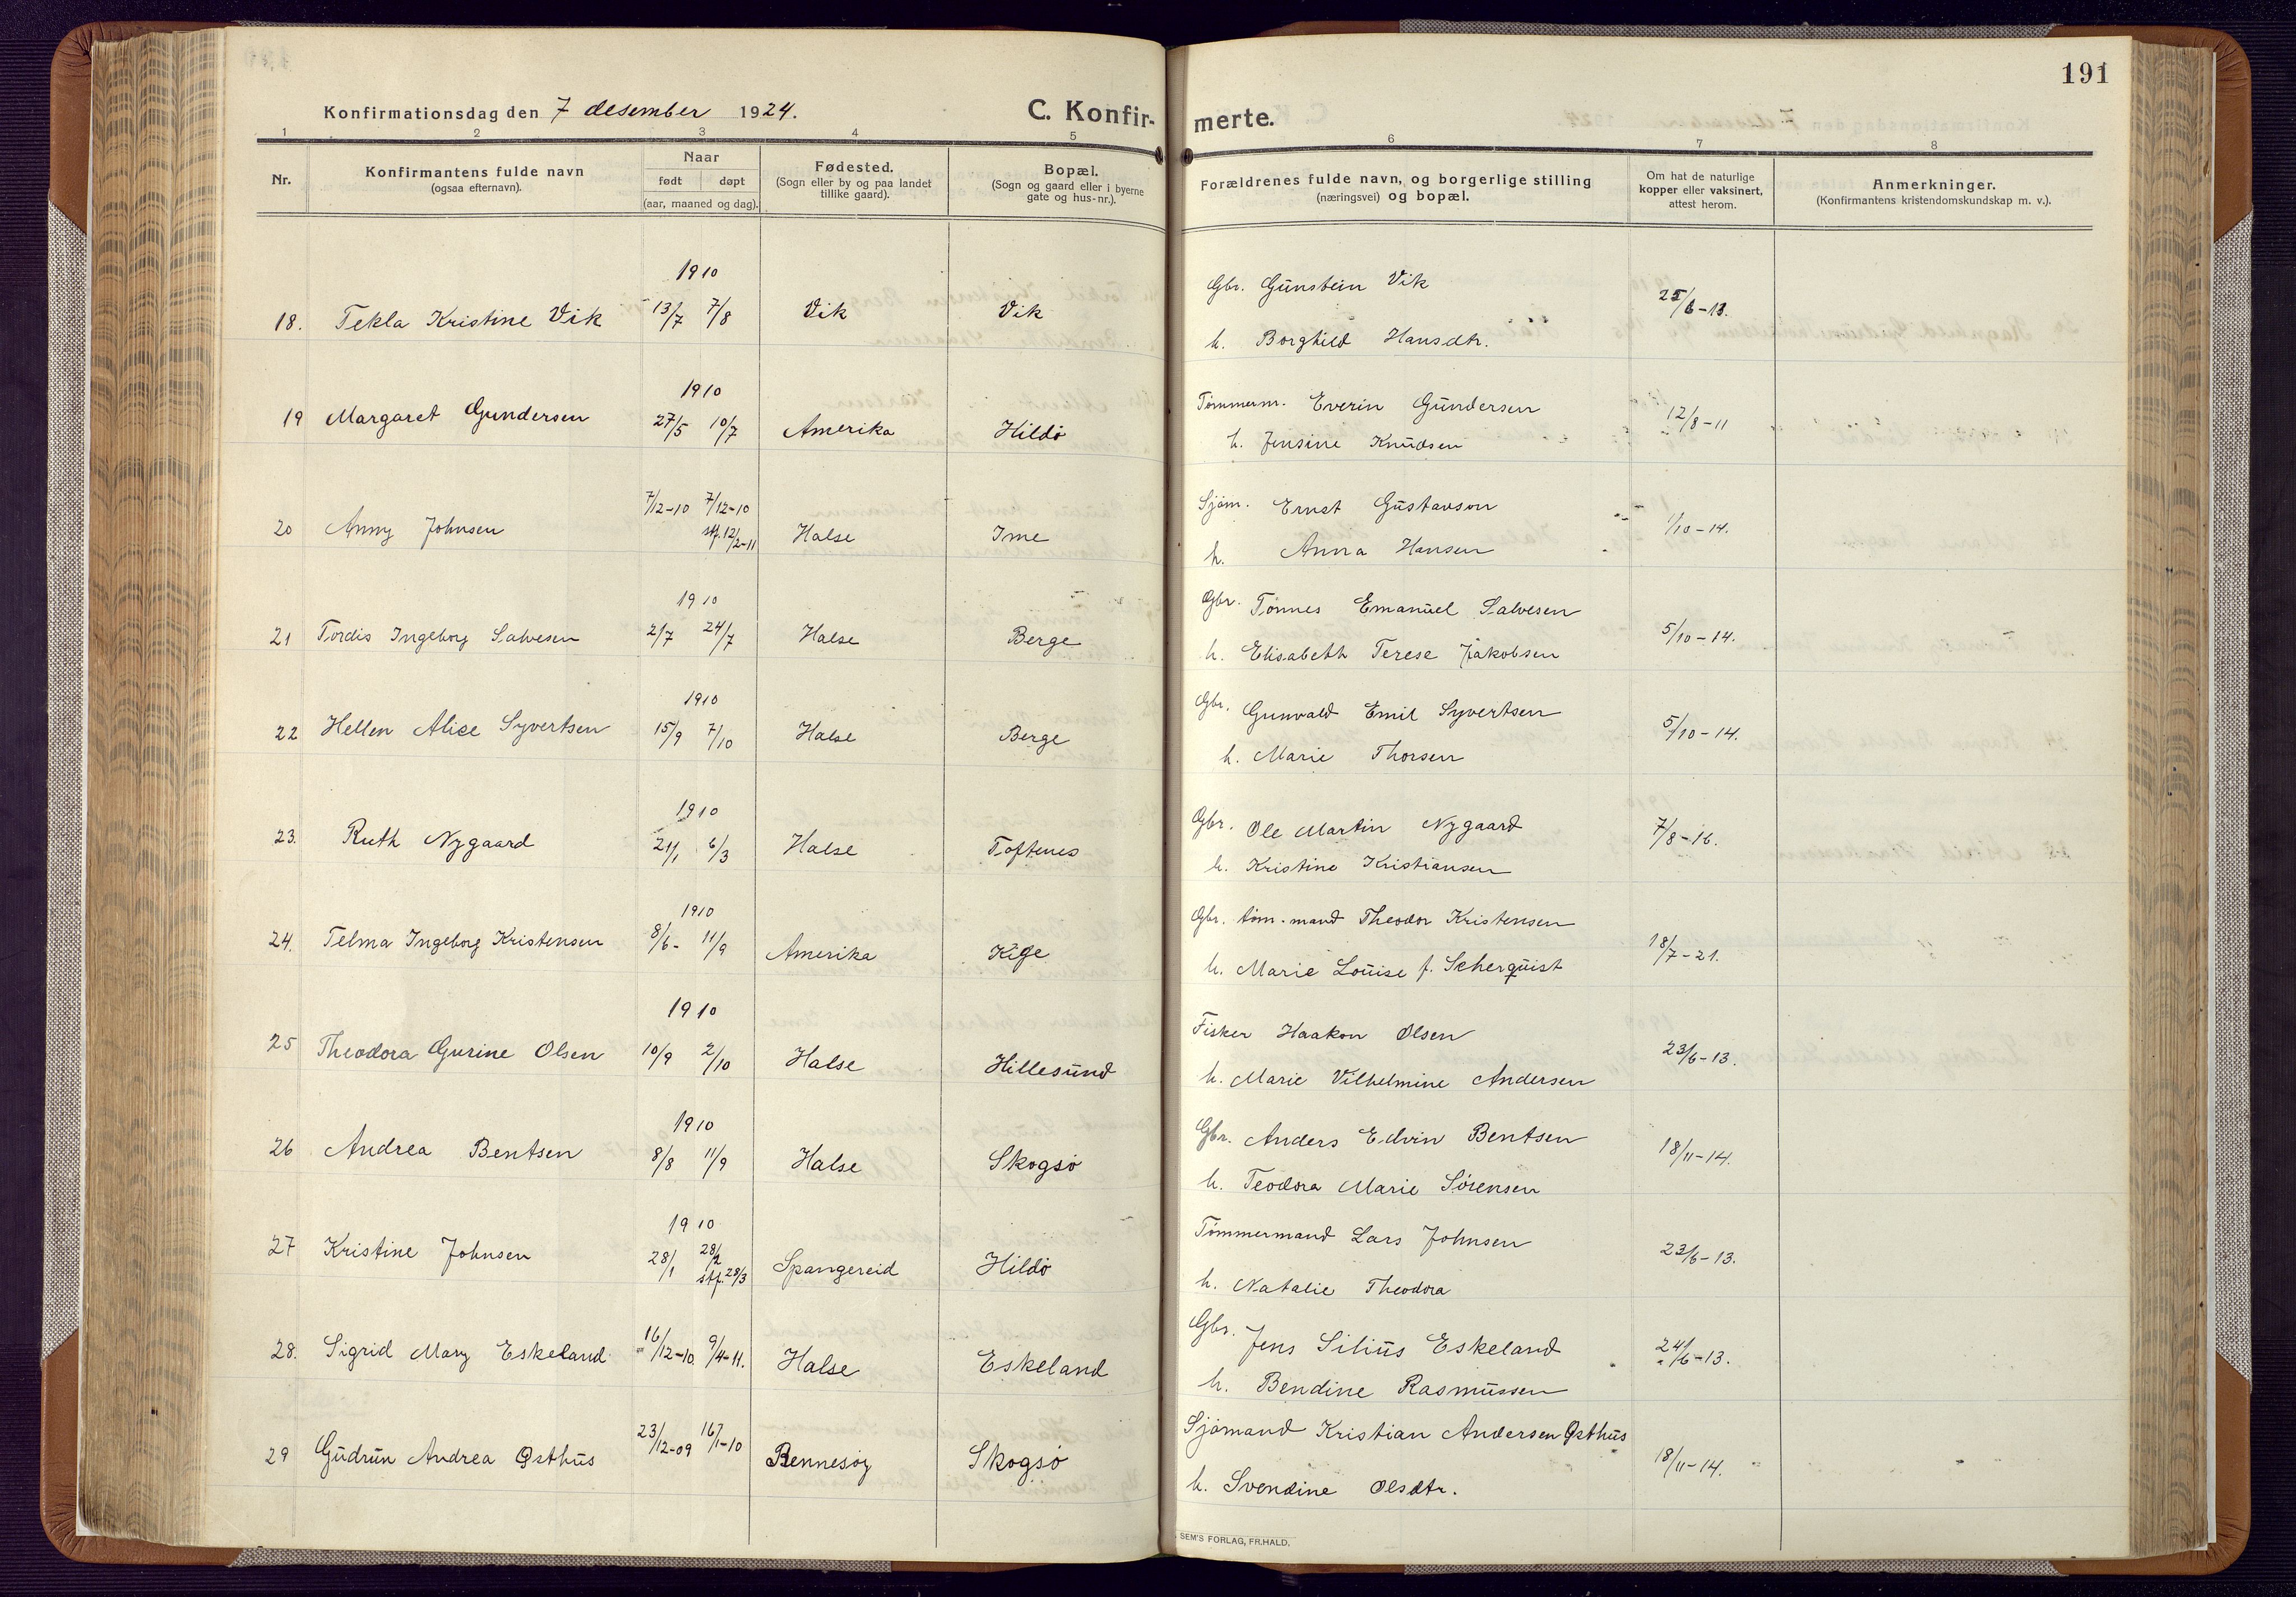 191
Konfirmationsdag den 7 desember 1924.
C. Konfir-
merte.
1 2 3 4 5 6 7 8
Nr.
Konfirmantens fulde navn
(ogsaa efternavn).
Naar
født døpt
(aar, maaned og dag).
Fødested.
(Sogn eller by og paa landet
tillike gaard).
Bopæl.
(Sogn og gaard eller i byerne
gate og hus-nr.).
Forældrenes fulde navn, og borgerlige stilling
(næringsvei) og bopæl.
Om hat de naturlige
kopper eller vaksinert,
attest herom.
Anmerkninger.
(Konfirmantens kristendomskundskap m. v.).
1910
Gbr. Gunstein Vik
18. Tekla Kristine Vik 13/7 7/8 Vik Vik 25/6-13.
h. Borghild Hansdtr.
1910
Tømmerm. Everin Gundersen
19 Margaret Gundersen 27/5 10/7 Amerika Hildø 12/8-11
h. Jensine Knudsen
7/12-10 7/12-10
Sjøm. Ernst Gustavson
20 Anny Johnsen stf. 12/2-11 Halse Ime 1/10-14.
h. Anna Hansen
1910
Gbr. Tønnes Emanuel Salvesen
21 Tordis Ingeborg Salvesen 2/7 24/7 Halse Berge 5/10-14.
h. Elisabeth Terese Jakobsen
1910
Gbr. Gunvald Emil Syvertsen
22 Hellen Alice Syvertsen 15/9 7/10 Halse Berge 5/10-14.
h. Marie Thorsen
1910
Gbr. Ole Martin Nygaard
23. Ruth Nygaard 21/1 6/3 Halse Toftenes 7/8-16.
h. Kristine Kristiansen
1910
Gbr. tøm.mand Theodor Kristensen
24. Telma Ingeborg Kristensen 8/6- 11/9 Amerika Kige 18/7-21.
h. Marie Louise f. Scherquist
1910
Fisker Haakon Olsen
25 Theodora Gurine Olsen 10/9 2/10 Halse Hillesund 23/6-13.
h. Marie Vilhelmine Andersen
1910
Gbr. Anders Edvin Bentsen
26 Andrea Bentsen 8/8 11/9 Halse Skogsø 18/11-14.
h. Teodora Marie Sørensen
1910
Tømmermand Lars Johnsen
27 Kristine Johnsen 28/1 28/2 stf. 28/3 Spangereid Hildø 23/6-13.
h. Natalie Theodora
Gbr. Jens Silius Eskeland
28. Sigrid Mary Eskeland 16/12-10. 9/4-11. Halse Eskeland 24/6-13.
h. Bendine Rasmussen
Sjømand Kristian Andersen Østhus
29 Gudrun Andrea Østhus 23/12-09 16/1-10 Rennesøy Skogsø 18/11-14.
h. Svendine Olsdtr.
SEM'S FORLAG, FR.HALD.